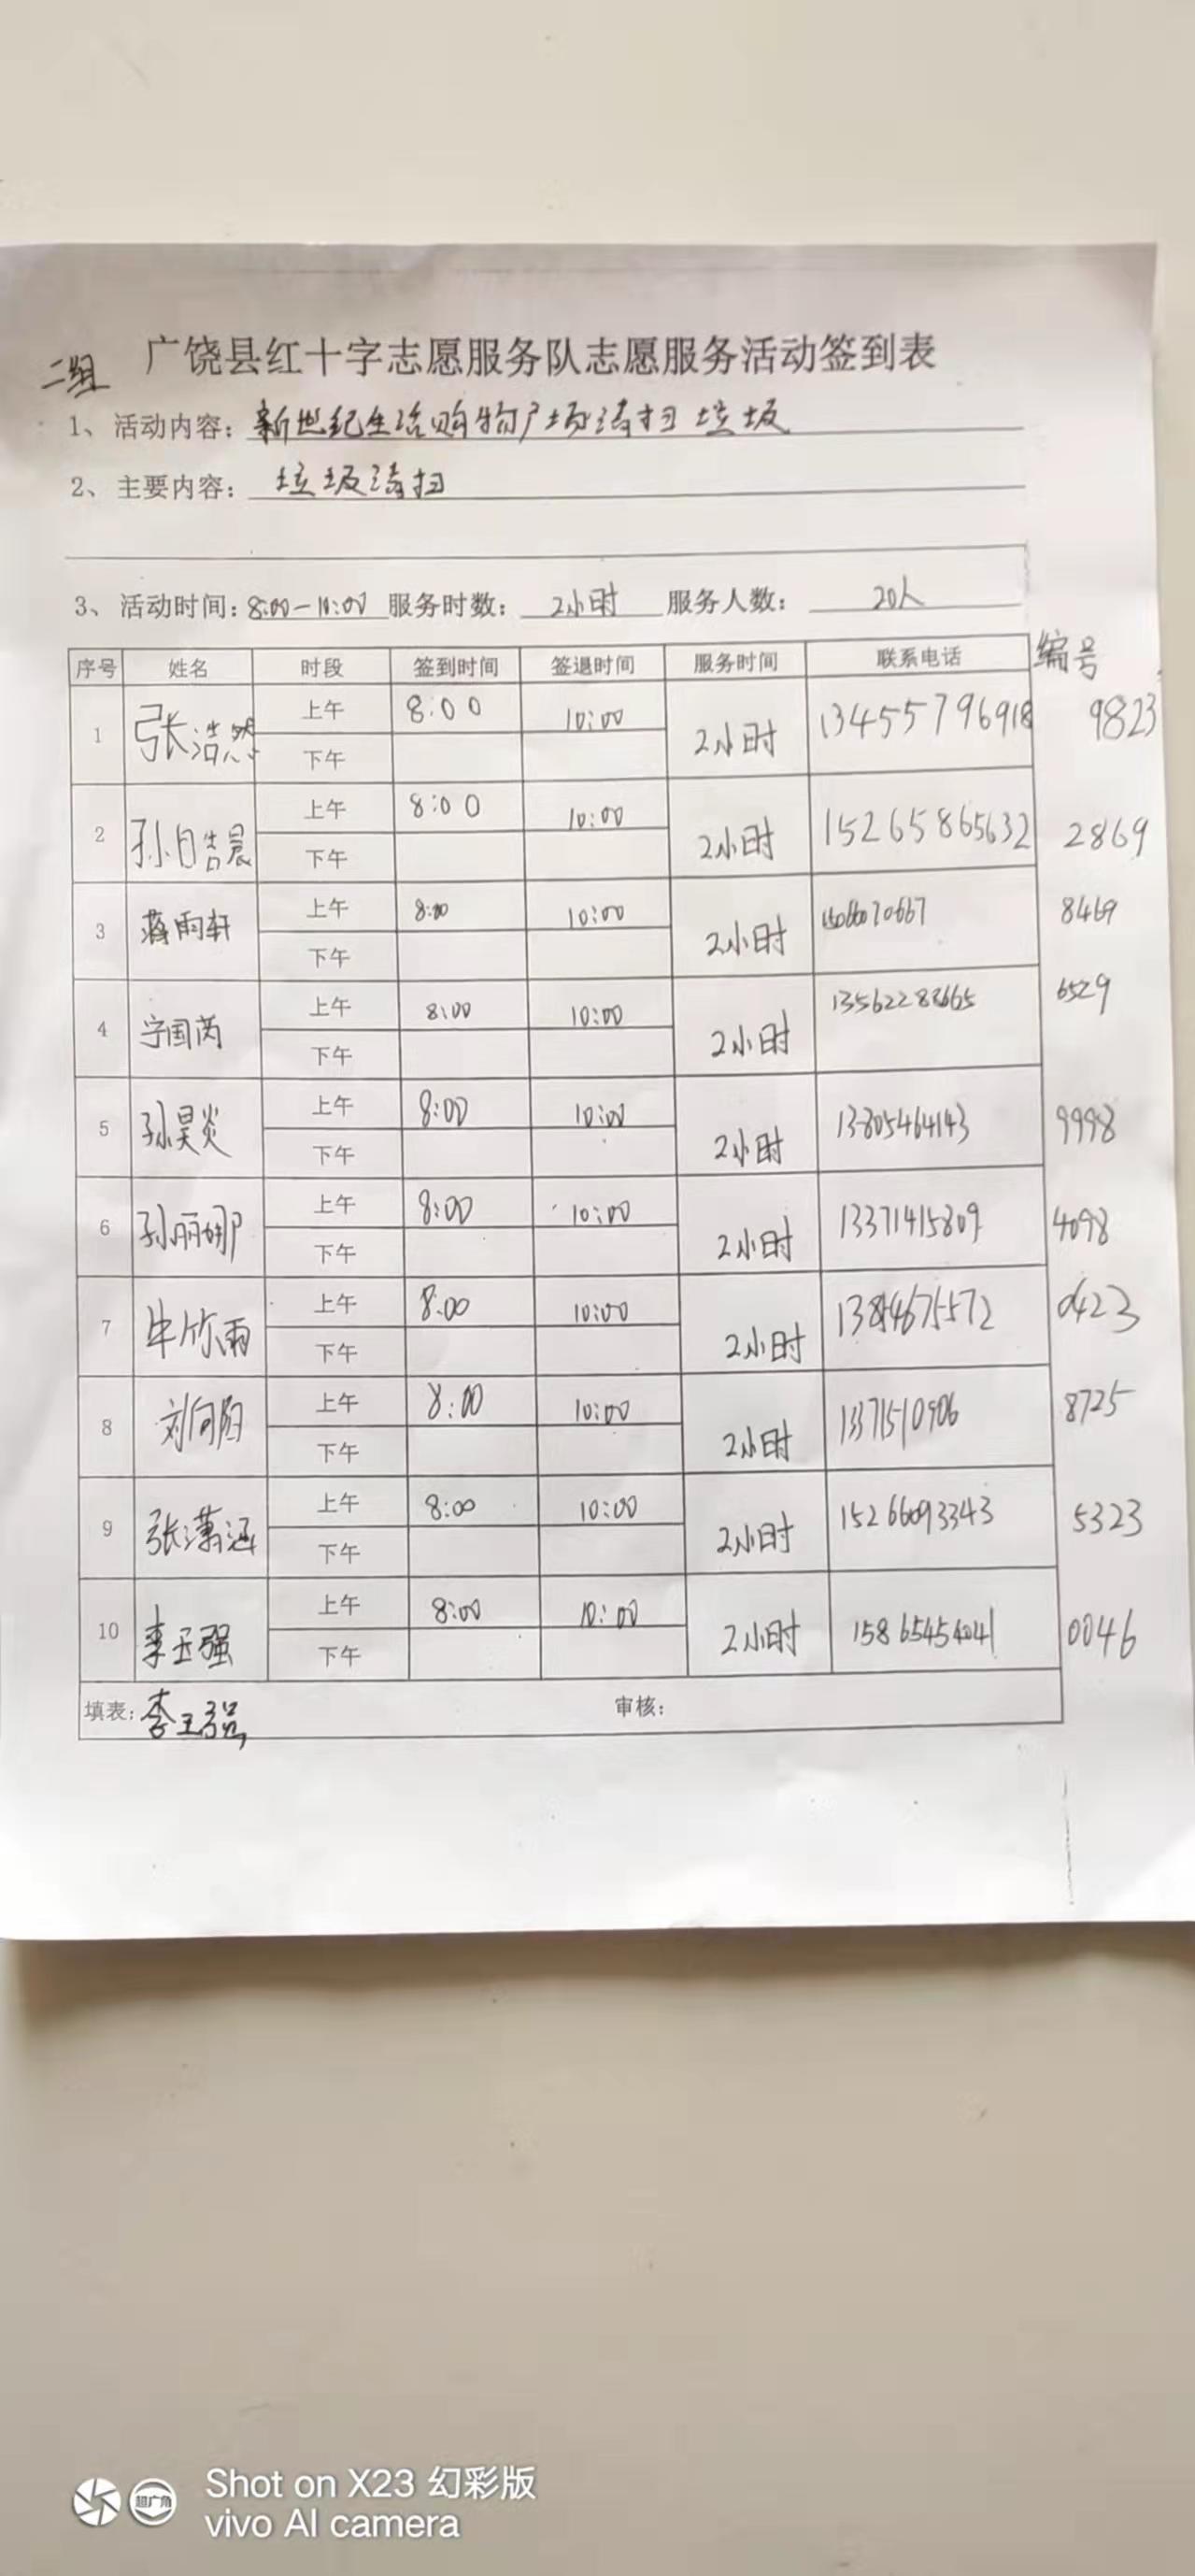 二组 广饶县红十字志愿服务队志愿服务活动签到表
1、活动内容：新世纪生活购物广场清扫垃圾
2、主要内容：垃圾清扫
3、活动时间：8:00-10:00 服务时数：2小时 服务人数：20人
序号 姓名 时段 签到时间 签退时间 服务时间 联系电话 编号
1 张浩然 上午 8:00 10:00 2小时 13455796918 9823
下午
2 孙皓晨 上午 8:00 10:00 2小时 15265865632 2869
下午
3 蒋雨轩 上午 8:00 10:00 2小时 8469
下午
4 上午 8:00 10:00 2小时 6529
下午
5 孙昊炎 上午 8:00 10:00 2小时 13805464143 9998
下午
6 孙丽娜 上午 8:00 10:00 2小时 13371415809 4098
下午
7 牛竹雨 上午 8:00 10:00 2小时 0423
下午
8 刘向阳 上午 8:00 10:00 2小时 13371510906 8725
下午
9 张潇涵 上午 8:00 10:00 2小时 15266093343 5323
下午
10 李玉强 上午 8:00 10:00 2小时 15865454041 0046
下午
填表：李玉强 审核：
Shot on X23 幻彩版
超广角
vivo AI camera